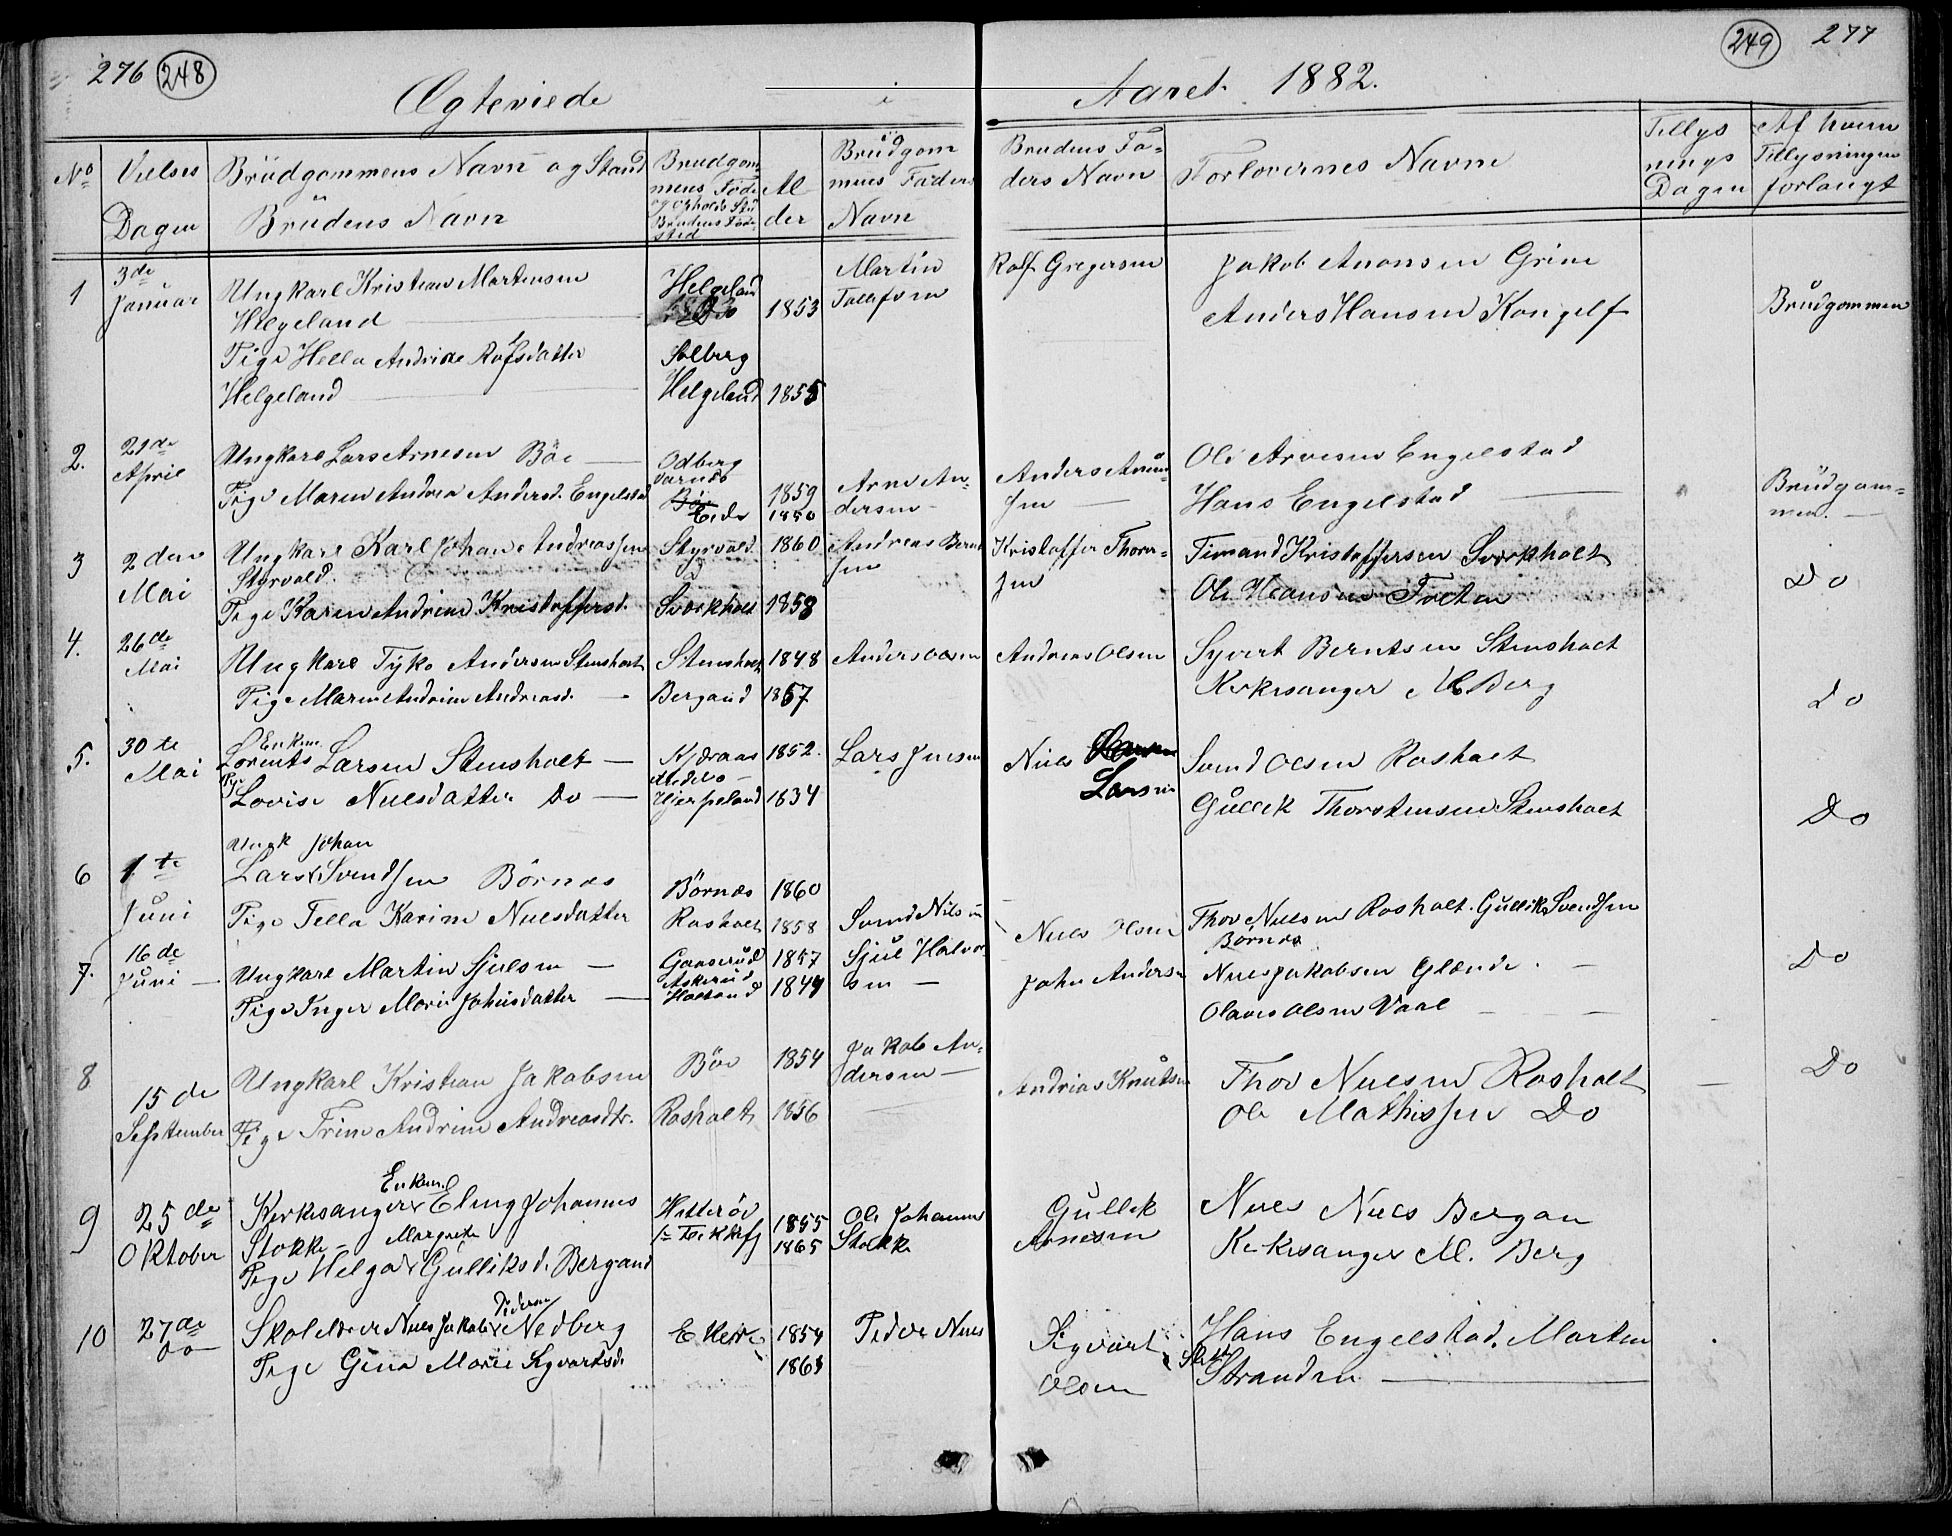 276 248
249 277
Ægteviede i Aaret 1882.
No
Vielses Dagen
Brüdgommens Navn og Stand
Brüdens Navn
Brudgommens Føde og Opholds Sted
Brudens Fødested
Alder
Brüdgommens Faders Navn
Brudens Faders Navn
Forlovernes Navne
Tillysnings Dagen
Af hvem Tillysningen forlangt
1
3de Januar
Ungkarl Kristian Martensen
Helgeland
Helgeland
Do
1853
Martin
Tollefsen
Rolf Gregersen
Jakob Anonsen Grini
Anders Hansen Kongelf
Brüdgommen
Pige Hella Andrine Rolfsdatter
Helgeland
Solberg
Helgeland
1855
2.
21de April
Ungkarl Lars Arnesen Böe
Pige Maren Andrea Andersd. Engelstad
Odberg
Varnes
Böe
Eide
1859
1850
Arne Andersen
Anders
Ole Arvesen Engelstad
Hans Engelstad
Brüdgommen.
3
2den Mai
Ungkarl Karl Johan Andreassen
Styrvold.
Pige Karen Andrine Kristoffersd.
Styrvold
Sværkholt
1860
1858
Andreas Berntsen
Kristoffer Thorsen
Timand Kristoffersen Sværkholt
Ole Hansen Troten
Do
4.
26de Mai
Ungkarl Tyko Andersen Stensholt
Pige Maren Andrine Andreasd.
Stensholt
Bergand
1848
1857
Anders Olsen
Andreas Olsen
Syvert Berntsen Stensholt
Kirkesanger M Berg
Do
5.
30te Mai
Enkem.
Lorents Larsen Stensholt
Pige
Lovise Nielsdatter Do
Kjøraas
Hedels
Hjerpeland
1852.
1834
Lars Jensen
Niels Larsen
Svend Olsen Rosholt
Gullik Thorstensen Stensholt
Do
6
1te Juni
Ungk Johan
Lars Svendsen Börnes
Pige Tella Karine Nielsdatter
Börnes
Rosholt
1860
1858
Svend Nilsen
Niels Olsen
Thov Nielsen Rosholt. Gullik Svendsen
Börnes
Do
7.
16de Juni
Ungkarl Martin Sjulsen
Pige Inger Marie Johnsdatter
Gaaserud
Askerud
Holtand
1857
1844
Sjul Halvorsen
John Andersen
Niels Jakobsen Glænde.
Olaves Olsen Vaal
8
15de September
Ungkarl Kristian Jakobsen
Pige Trine Andrine Andreasdtr.
Böe
Rosholt
1854
1856
Jakob Andersen
Andrias Knutsen
Thov Nielsen Rosholt
Ole Mathissen Do
Do
9
25de Oktober
Enkem.
Kirkesanger Eling Johannes
Stokke
Margrete
Pige Helga Gülliksd. Bergand
Hitteröe
1855
1865
Ole Johannes
Stokke
Gullik
Arnesen
Niels Niels Bergan
Kirkesanger M. Berg
10
27de Do
Pedersen
Skolelærer Niels Jakob Nedberg
Pige Gina Marie Sigvartsd.
1854
1863
Peder Niels
Sigvart
Olsen
Hans Engelstad. Marten
Stranden